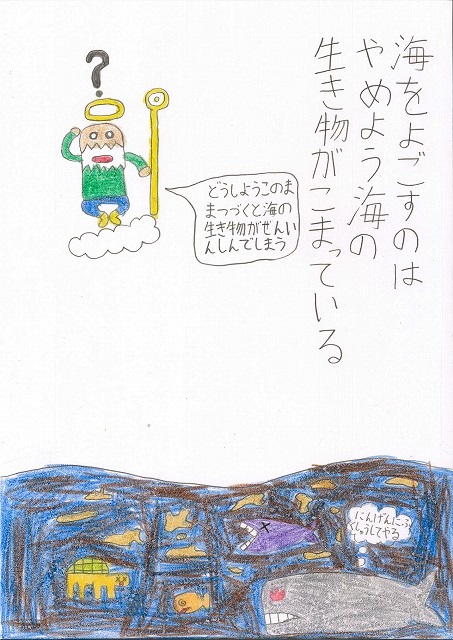 海をよごすのは
やめよう海の
生き物がこまっている
?
どうしようこのま
まつづくと海の
生き物がぜんい
んしんでしまう
にんげんにふ
くしゅうしてやる